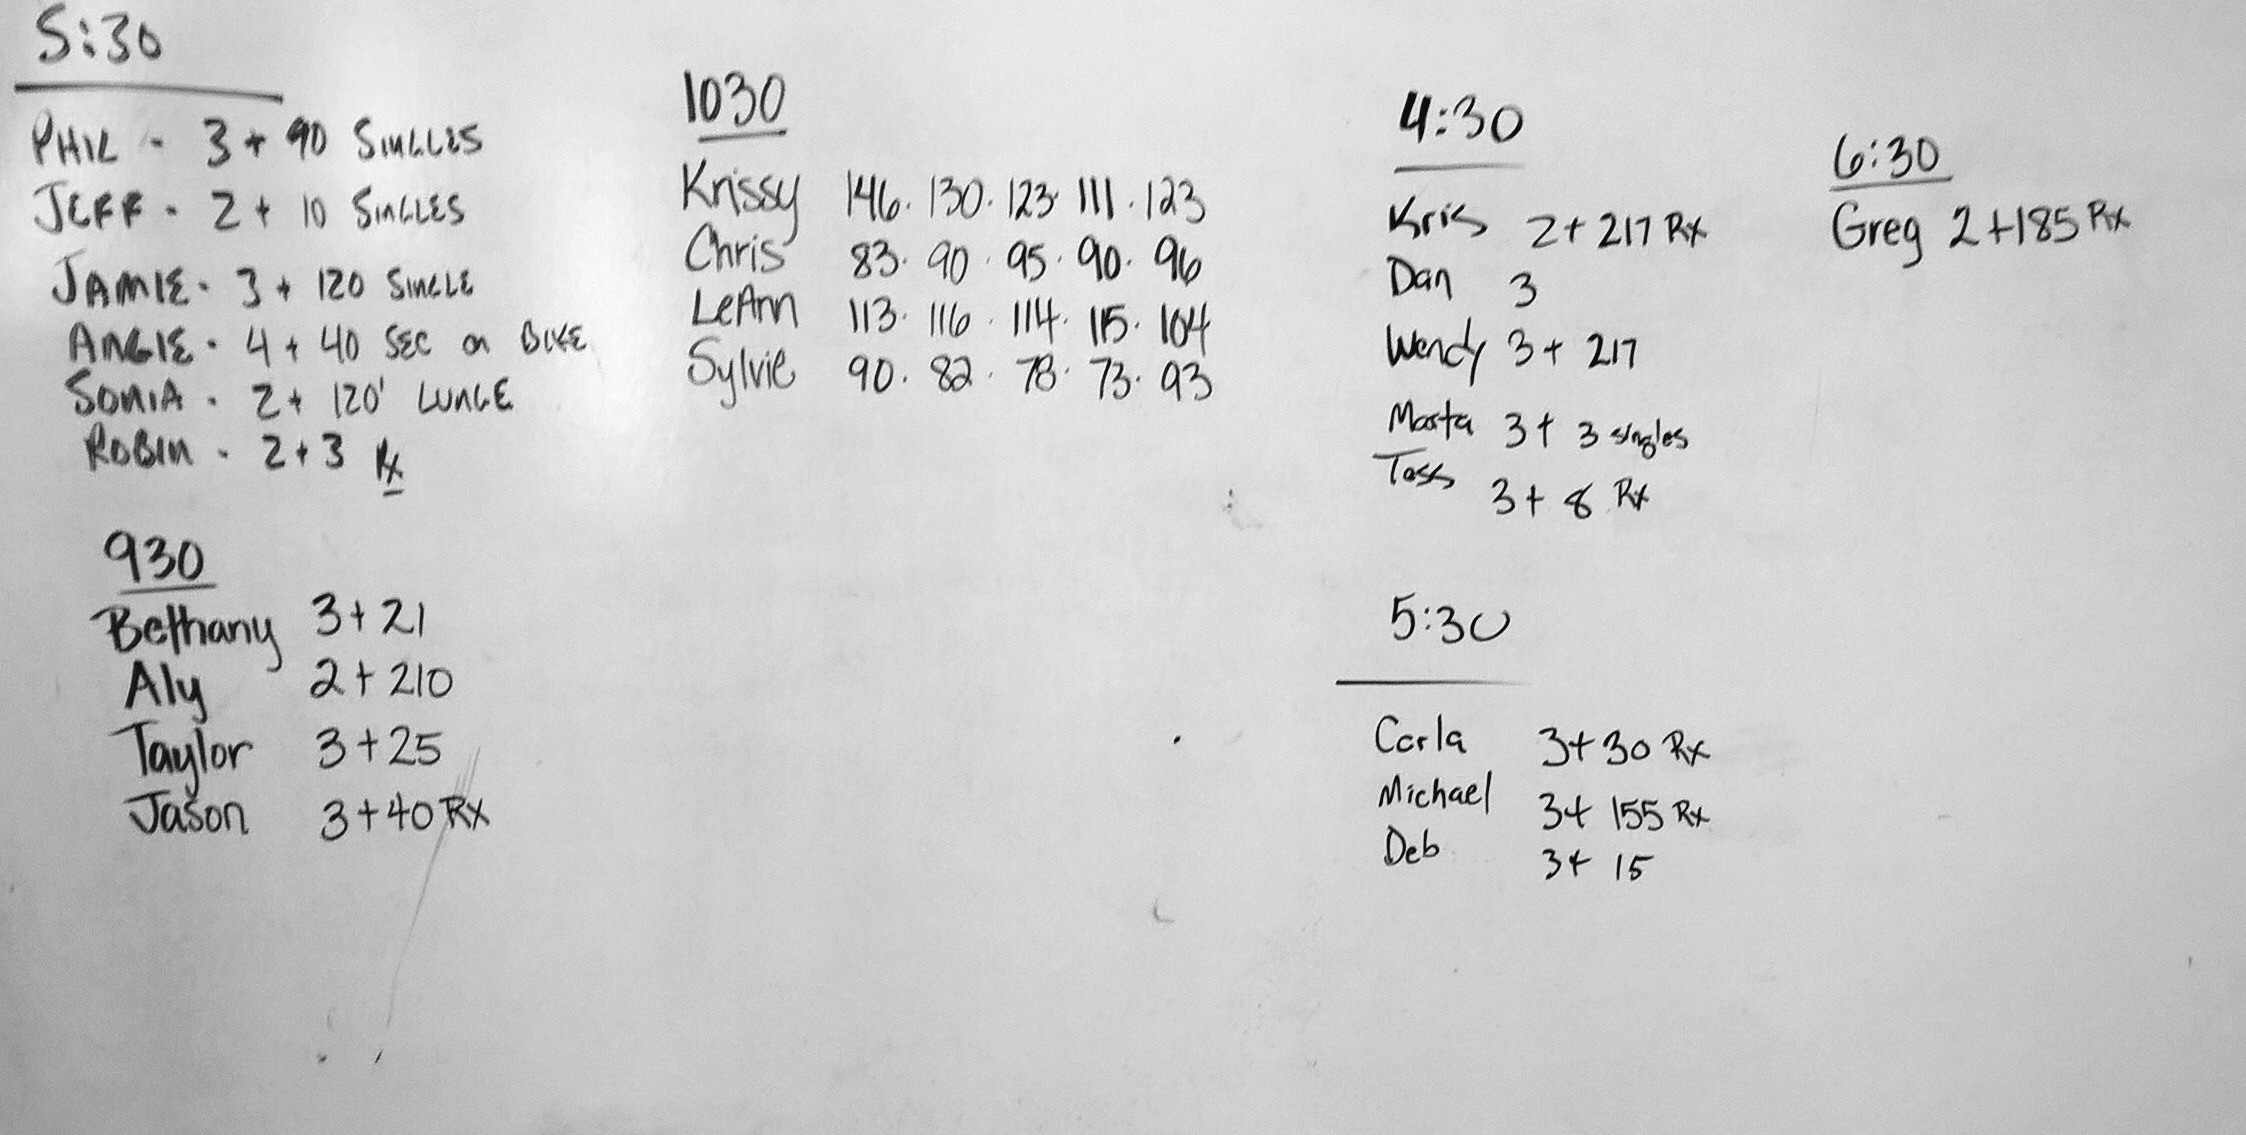 5:30
PHIL - 3 + 90 SINGLES
JEFF - 2 + 10 SINGLES
JAMIE - 3 + 120 SINGLE
ANGIE - 4 + 40 SEC on BIKE
SONIA - 2 + 120' LUNGE
ROBIN - 2 + 3 Rx
930
Bethany 3 + 21
Aly 2 + 210
Taylor 3 + 25
Jason 3 + 40 Rx
1030
Krissy 146 · 130 · 123 · 111 · 123
Chris 83 · 90 · 95 · 90 · 96
LeAnn 113 · 116 · 114 · 115 · 104
Sylvie 90 · 82 · 78 · 73 · 93
4:30
Kris 2 + 217 Rx
Dan 3
Wendy 3 + 217
Marta 3 + 3 singles
3 + 8 Rx
5:30
Carla 3 + 30 Rx
Michael 3 + 155 Rx
Deb 3 + 15
6:30
Greg 2 + 185 Rx